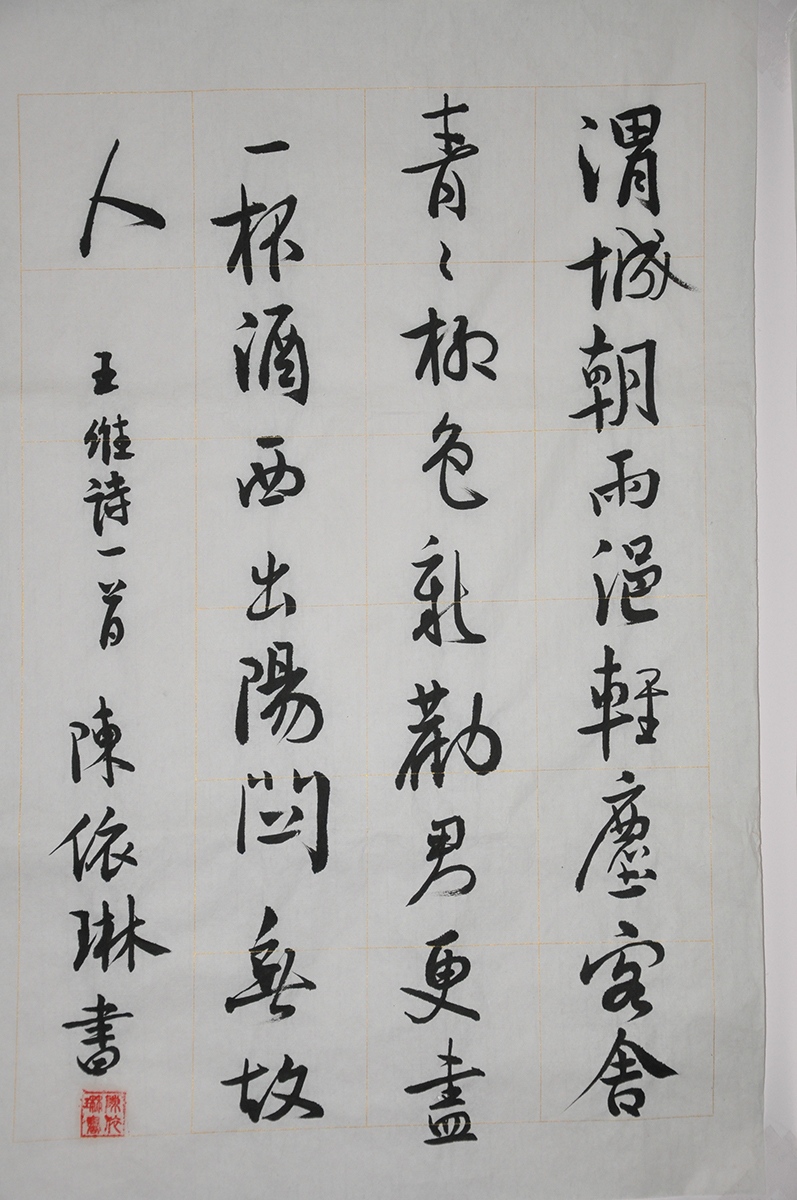 渭城朝雨浥輕塵客舍
青〻柳色新勸男更盡
一杯酒西出陽關無故
人
王維詩一首 陳依琳書